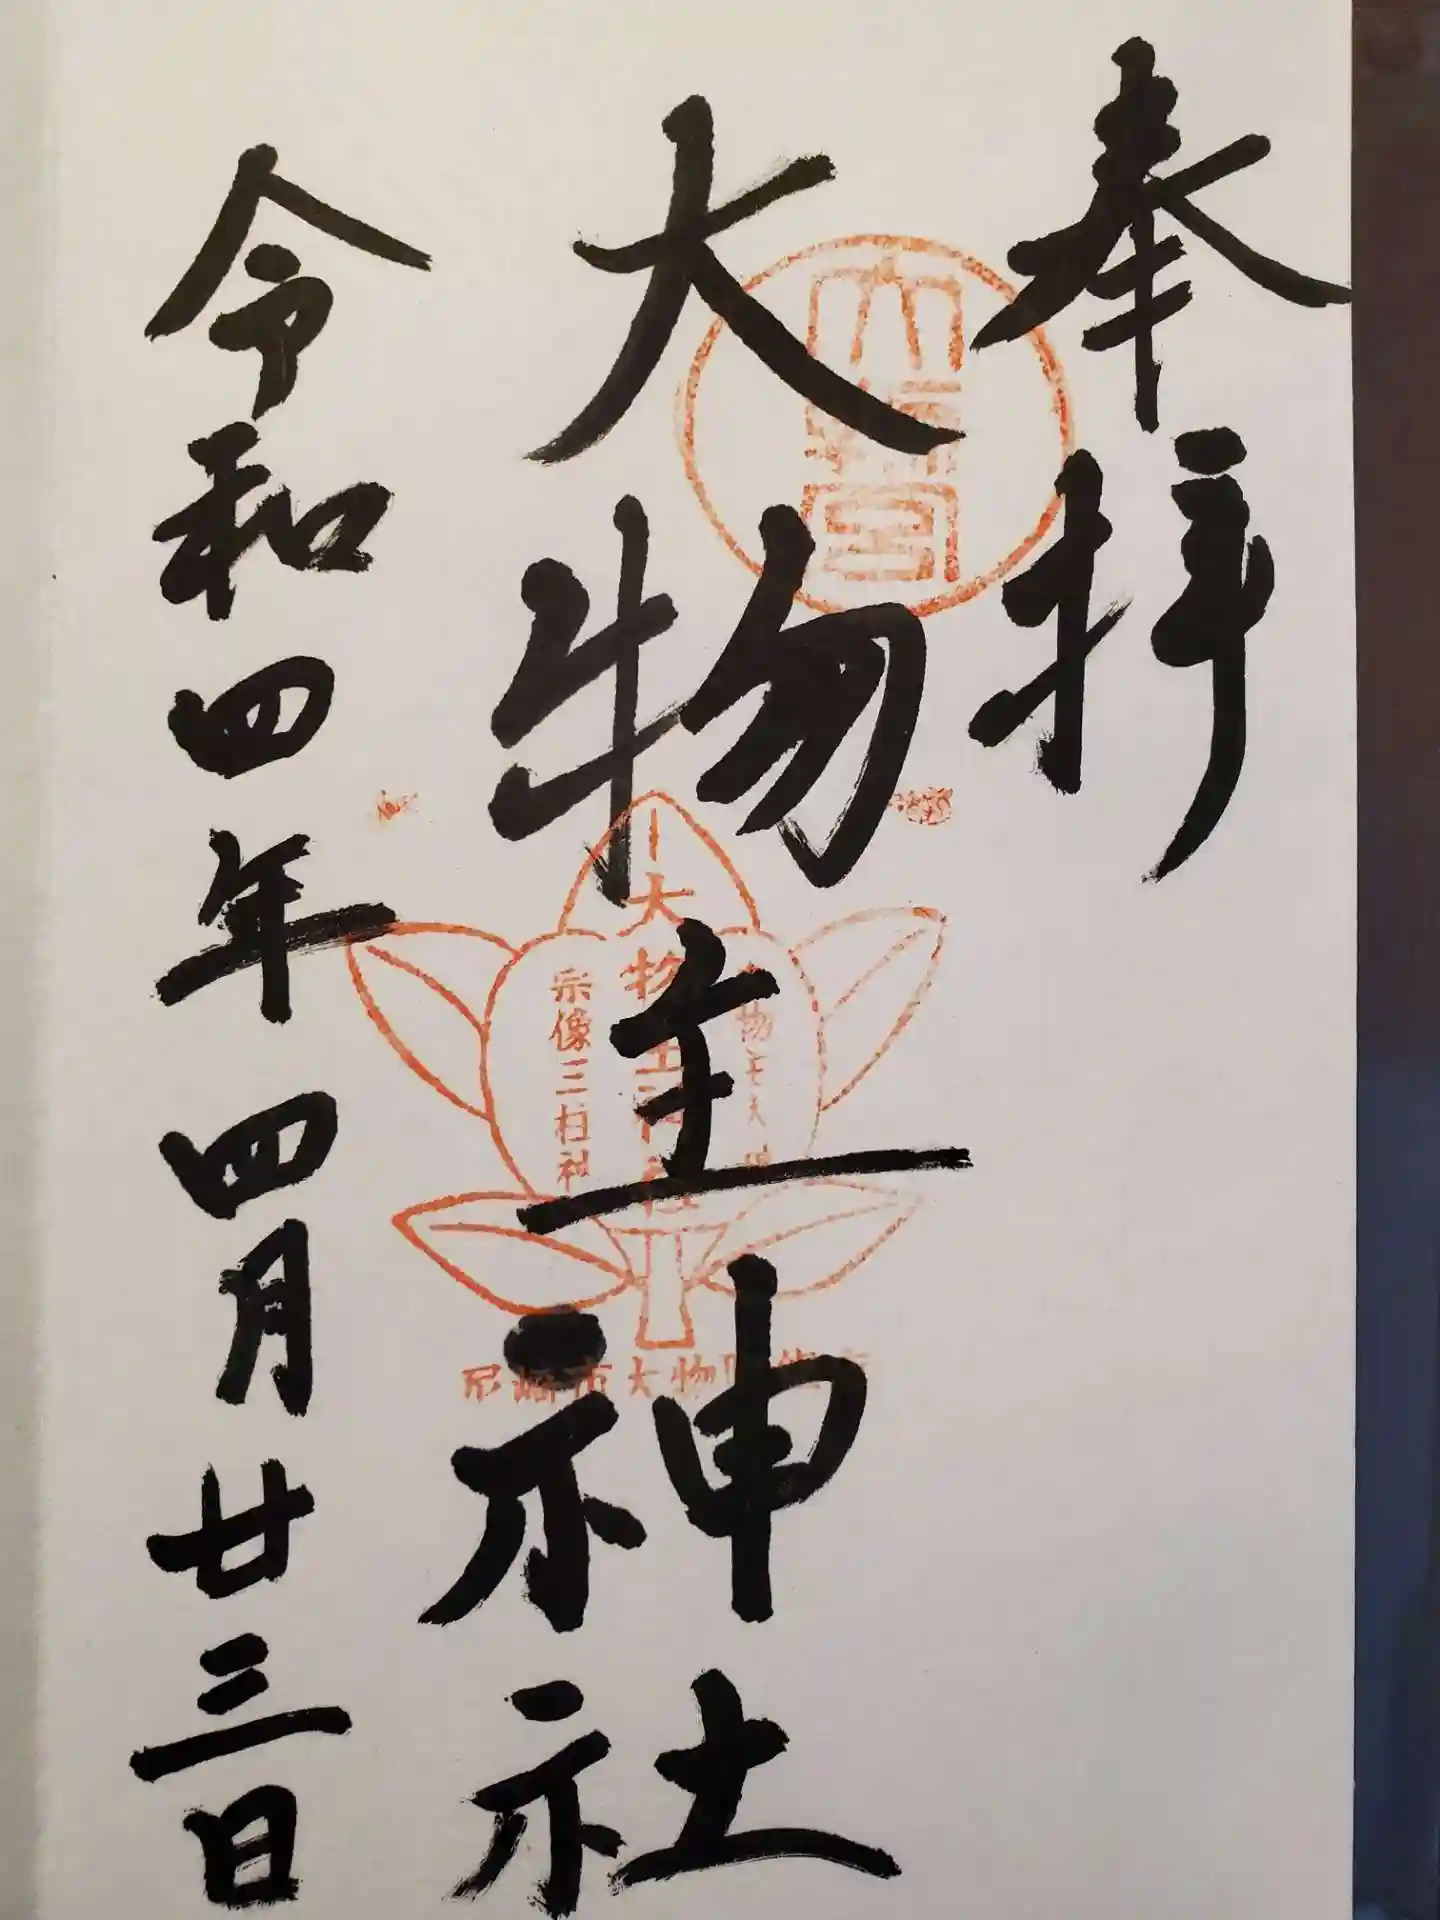 奉拝
大物主神社
令和四年四月廿三日
大物主神社
宗像三柱神
尼崎市大物